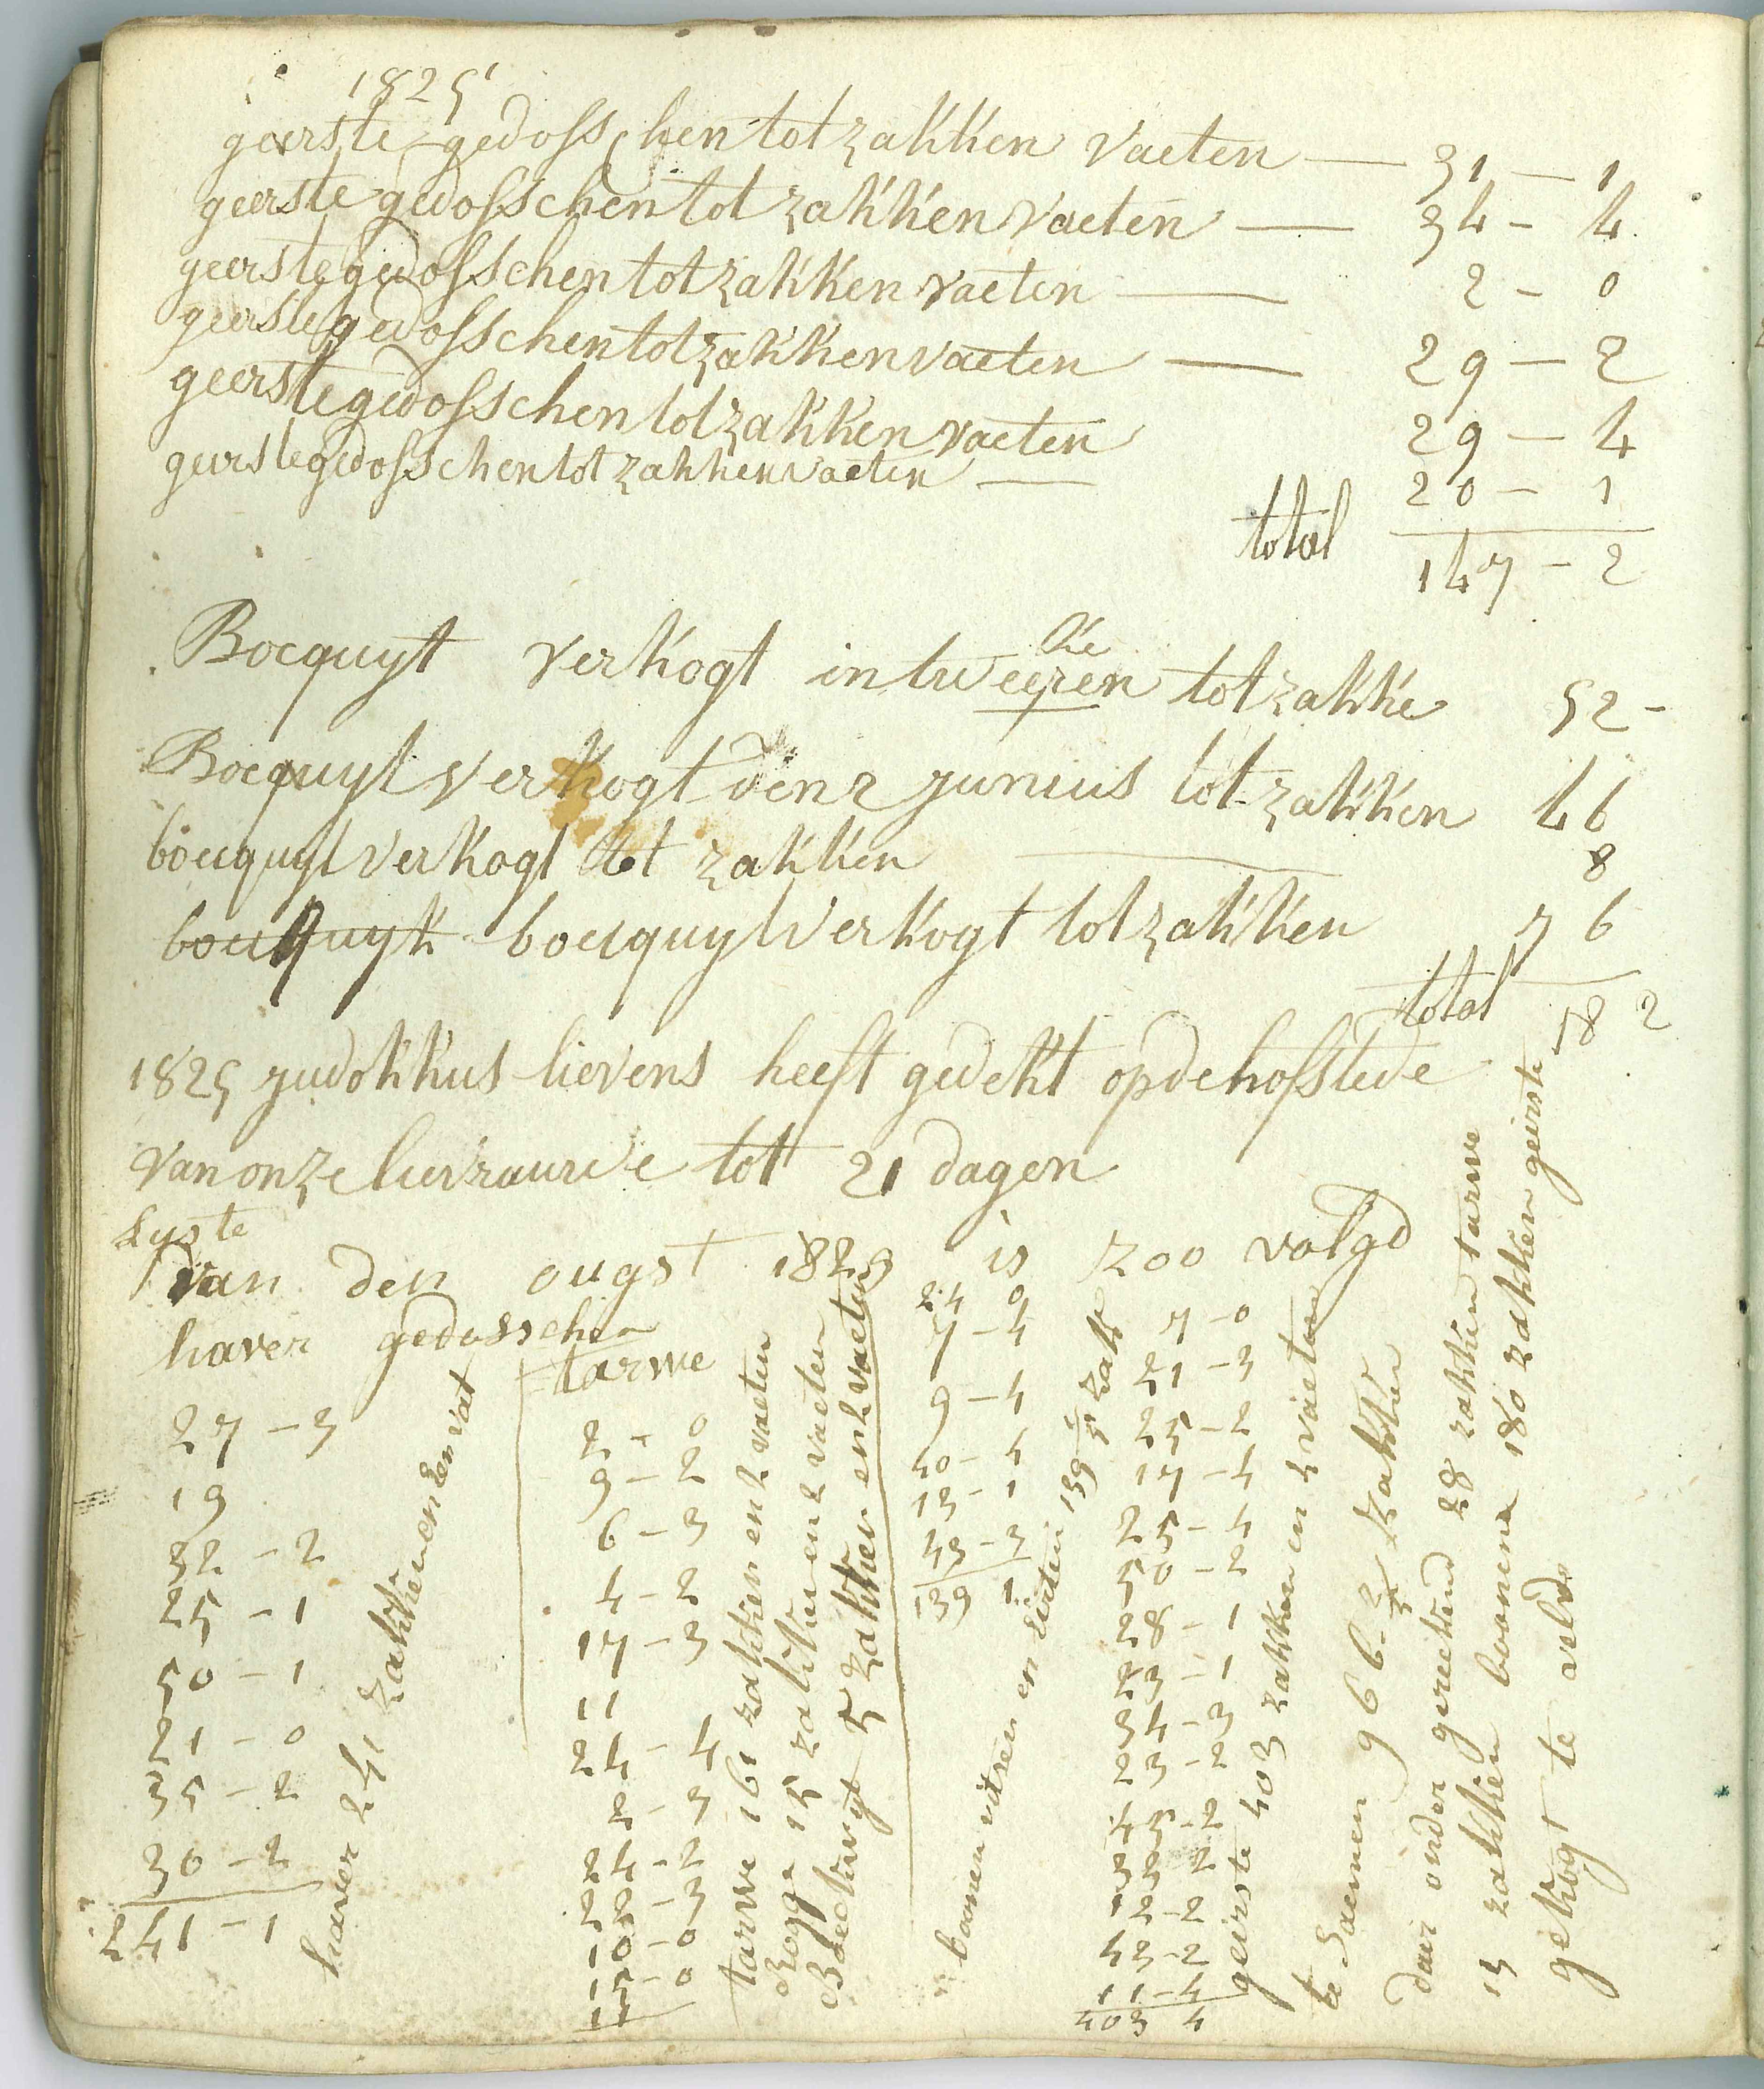 1825
geerste gedosschen tot zakken vaeten — 31 — 1
geerste gedosschen tot zakken vaeten — 34 - 4
geerste gedosschen tot zakken vaeten — 2 - 0
geerste gedosschen tot zakken vaeten — 29 — 2
geerste gedosschen tot zakken vaeten 29 — 4
geerste gedosschen tot zakken vaeten — 20 - 1
total 147 - 2
Bocquyt verkogt in twee keeren tot zakke 52 -
Bocquyt verkogt den 2 junius tot zakken 46
boucquyt verkogt tot zakken — 8
boucquyt verkogt tot zakken 76
total 182
1825 judokkus lievens heeft gedekt op de hofstede
van onze lievrauwe tot 21 dagen
Lyste
van den ougst 1829 is zoo volgd
haver gedosschen
27 - 3
19
32 - 2
25 - 1
50 - 1
21 - 0
35 - 2
30 - 2
241 - 1
haver 241 zakken en een vat
tarwe
2 - 0
9 - 2
6 - 3
4 - 2
17 - 3
11
24 - 4
2 - 3
24 - 2
22 - 3
10 - 0
15 - 0
11
tarwe 161 zakken en 2 vaeten
Rogge 15 zakken en 2 vaeten
Boeckwyt 5 zakken en 2 vaeten
24 0
7 - 4
9 - 4
40 - 4
13 - 1
43 - 3
139 1
boonen vitsen en 139 1/5 zakk
7 - 0
21 - 3
25 - 2
17 - 4
25 - 4
50 - 2
28 - 1
23 - 1
34 - 3
23 - 2
45 - 2
33 2
12 - 2
43 - 2
11 - 4
403 4
geirste 403 zakken en 4 vaeten
te Saemen 966 2/5 zakken
daer onder gerekend 28 zakken tarwe
13 zakken boonen 180 zakken geirste
gekogt te velde